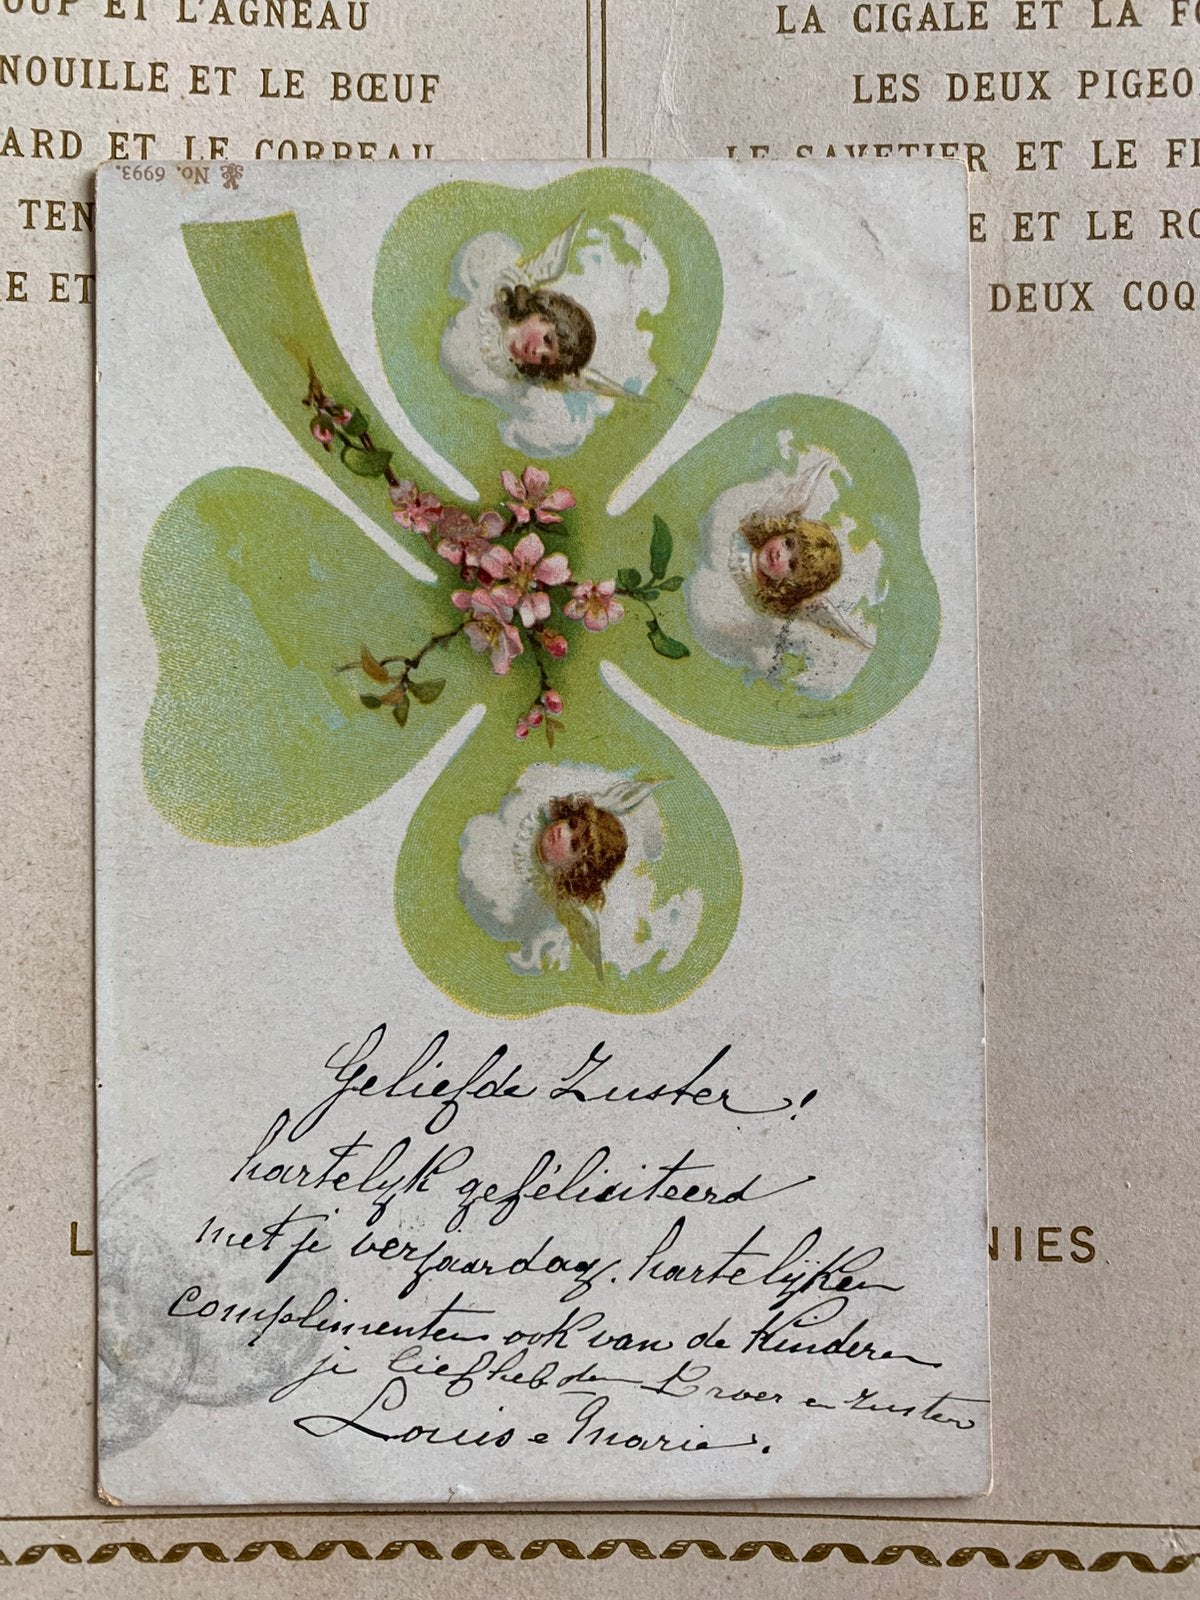 OUP ET L'AGNEAU
NOUILLE ET LE BŒUF
ARD ET LE CORBEAU
TEN
E ET
LA CIGALE ET LA FO
LES DEUX PIGEO
LE SAVETIER ET LE FI
E ET LE RO
DEUX COQ
No. 6993.
Geliefde Zuster!
hartelijk geféliciteerd
met je verjaardag. hartelijken
complimenten ook van de Kinderen
je liefhebden Broer en zuster
Louis e Marie.
L
NIES